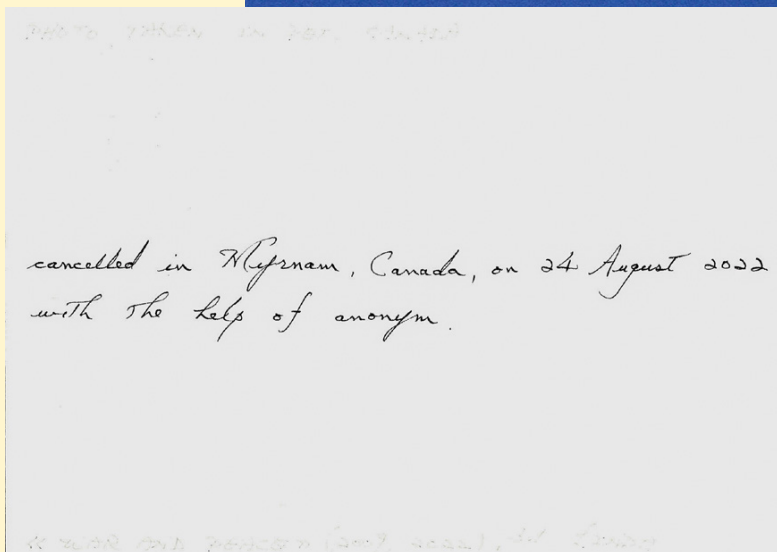 cancelled in Myrnam, Canada, on 24 August 2022
with the help of anonym.